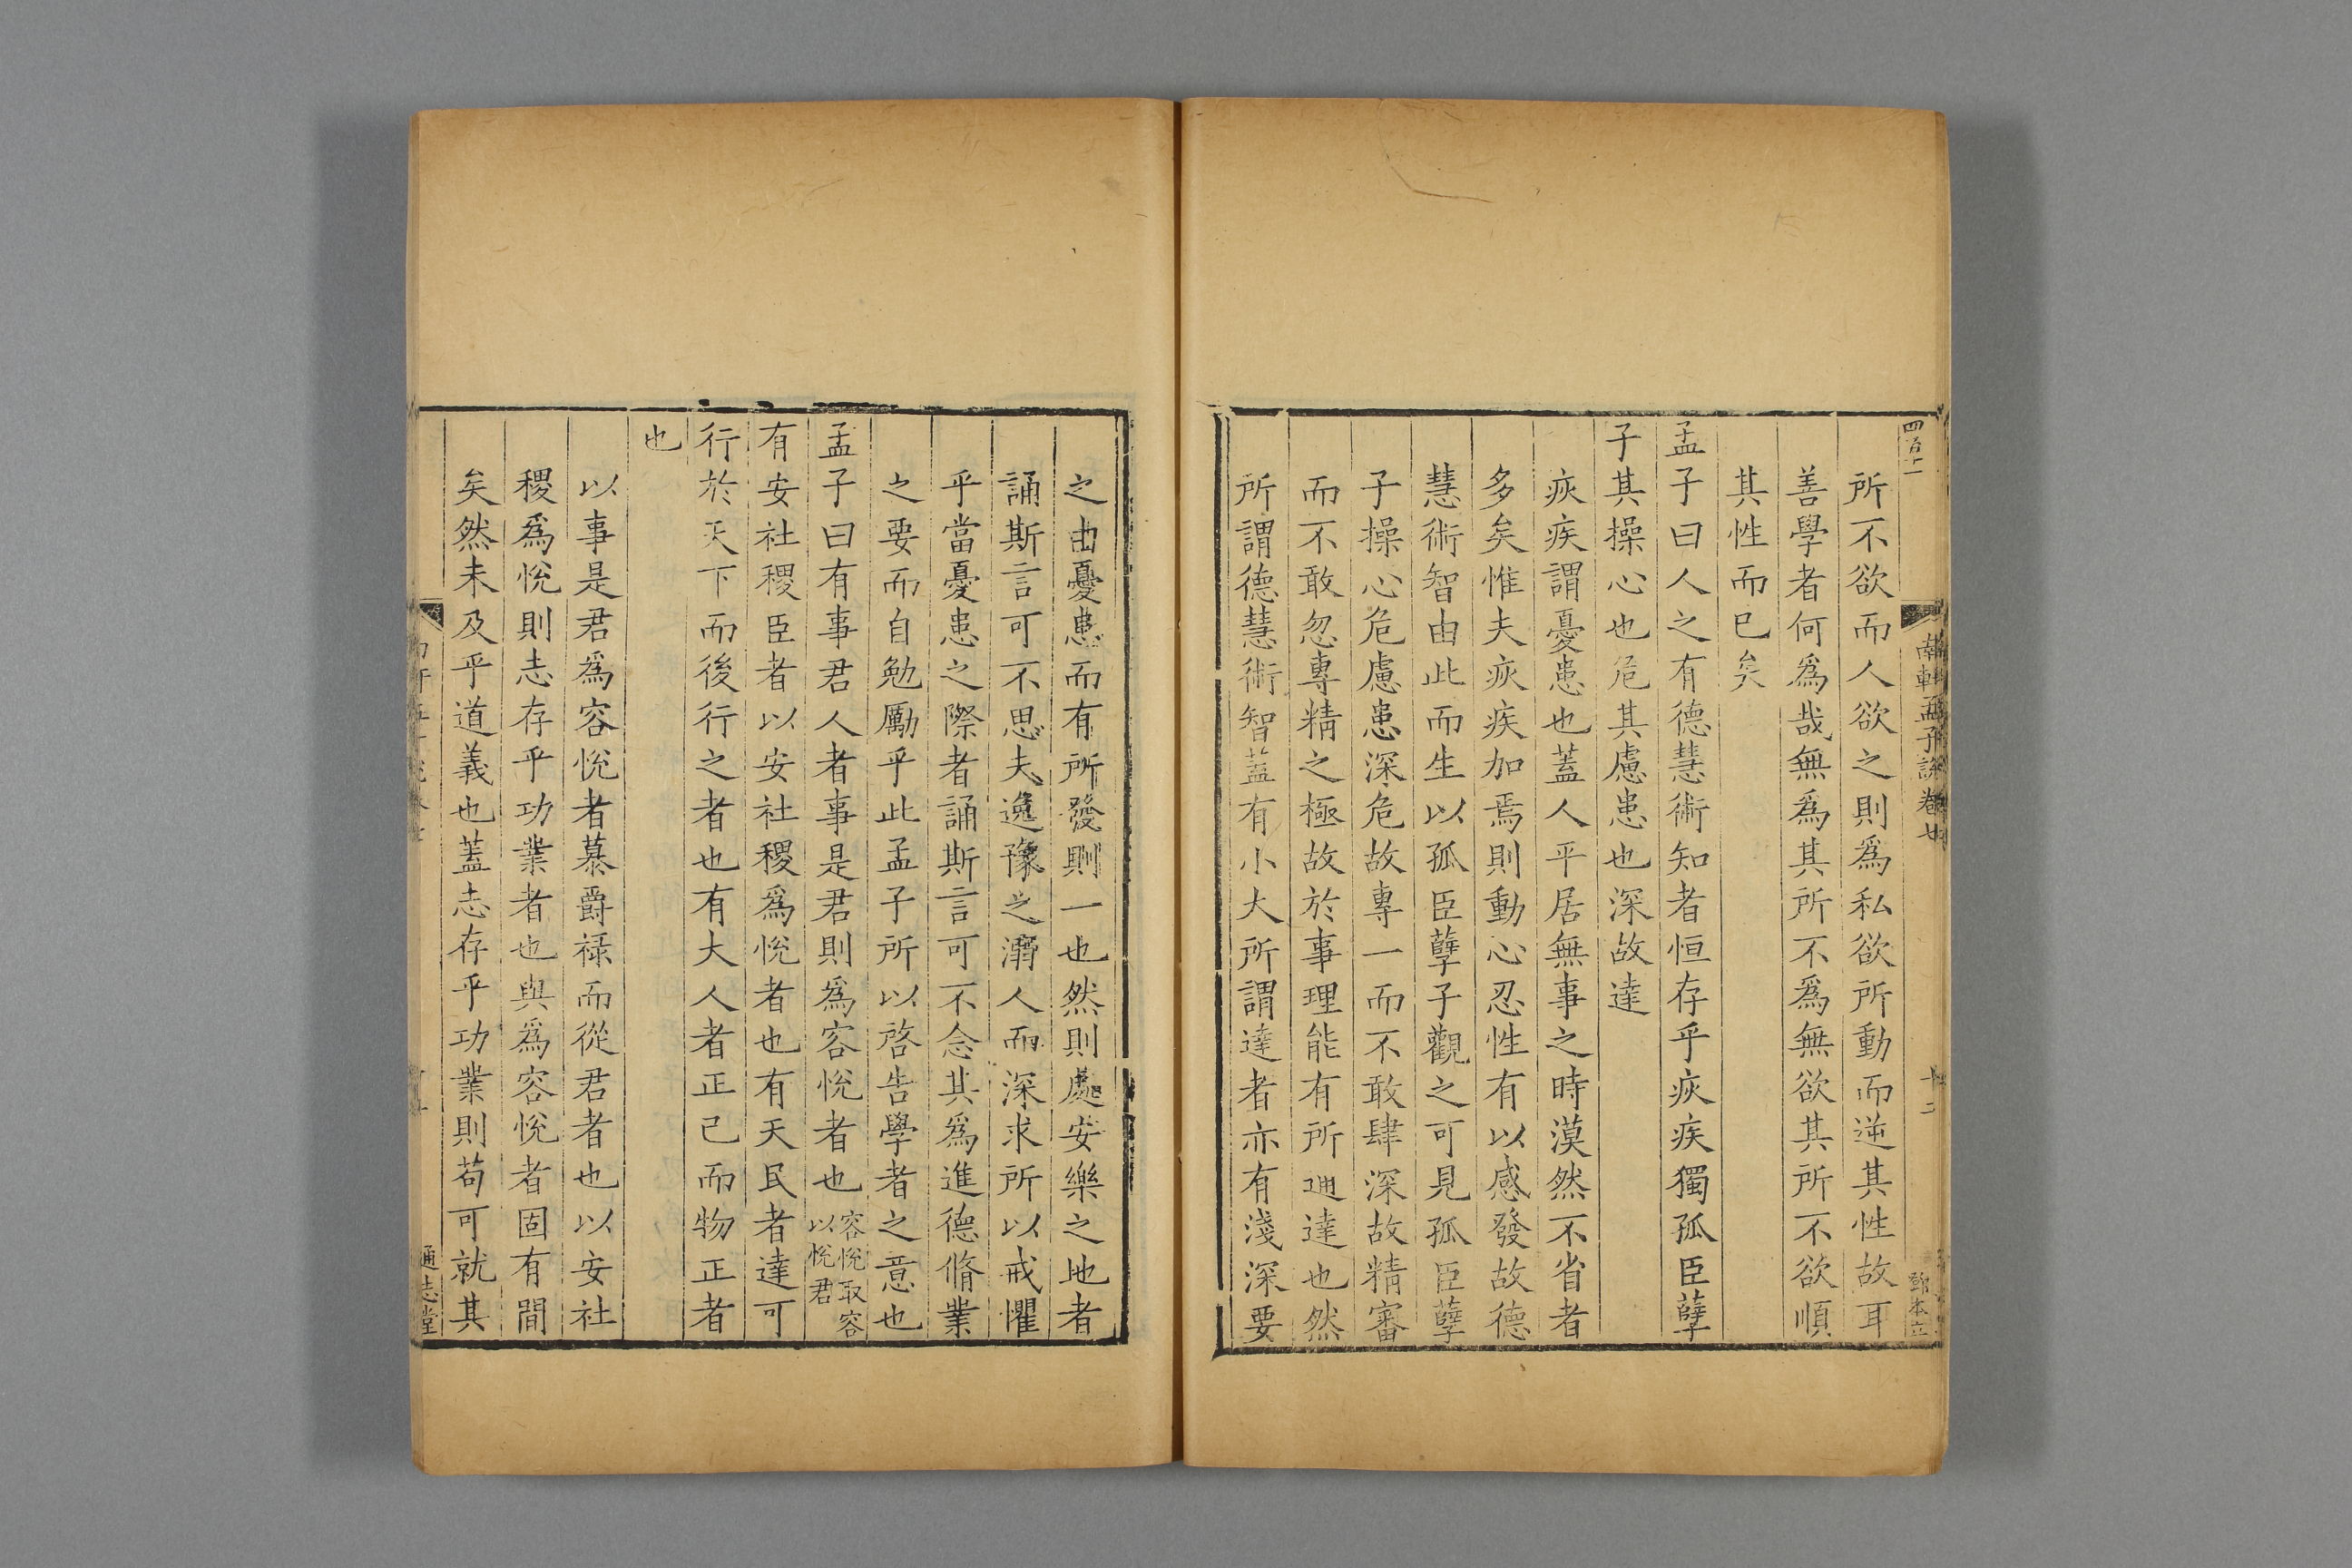 四百十
南軒孟子說卷七
十二
鄧本立
所不欲而人欲之則爲私欲所動而逆其性故耳
善學者何爲哉無爲其所不爲無欲其所不欲順
其性而已矣
孟子曰人之有德慧術知者恒存乎疢疾獨孤臣孽
子其操心也危其慮患也深故達
疢疾謂憂患也蓋人平居無事之時漠然不省者
多矣惟夫疢疾加焉則動心忍性有以感發故德
慧術智由此而生以孤臣孽子觀之可見孤臣孽
子操心危慮患深危故專一而不敢肆深故精審
而不敢忽專精之極故於事理能有所通達也然
所謂德慧術智蓋有小大所謂達者亦有淺深要
之由憂患而有所發則一也然則處安樂之地者
誦斯言可不思夫逸豫之溺人而深求所以戒懼
乎當憂患之際者誦斯言可不念其爲進德脩業
之要而自勉勵乎此孟子所以啓告學者之意也
孟子曰有事君人者事是君則爲容悅者也容悅取容以悅君
有安社稷臣者以安社稷爲悅者也有天民者達可
行於天下而後行之者也有大人者正己而物正者
也
以事是君爲容悅者慕爵祿而從君者也以安社
稷爲悅則志存乎功業者也與爲容悅者固有間
矣然未及乎道義也蓋志存乎功業則苟可就其
通志堂